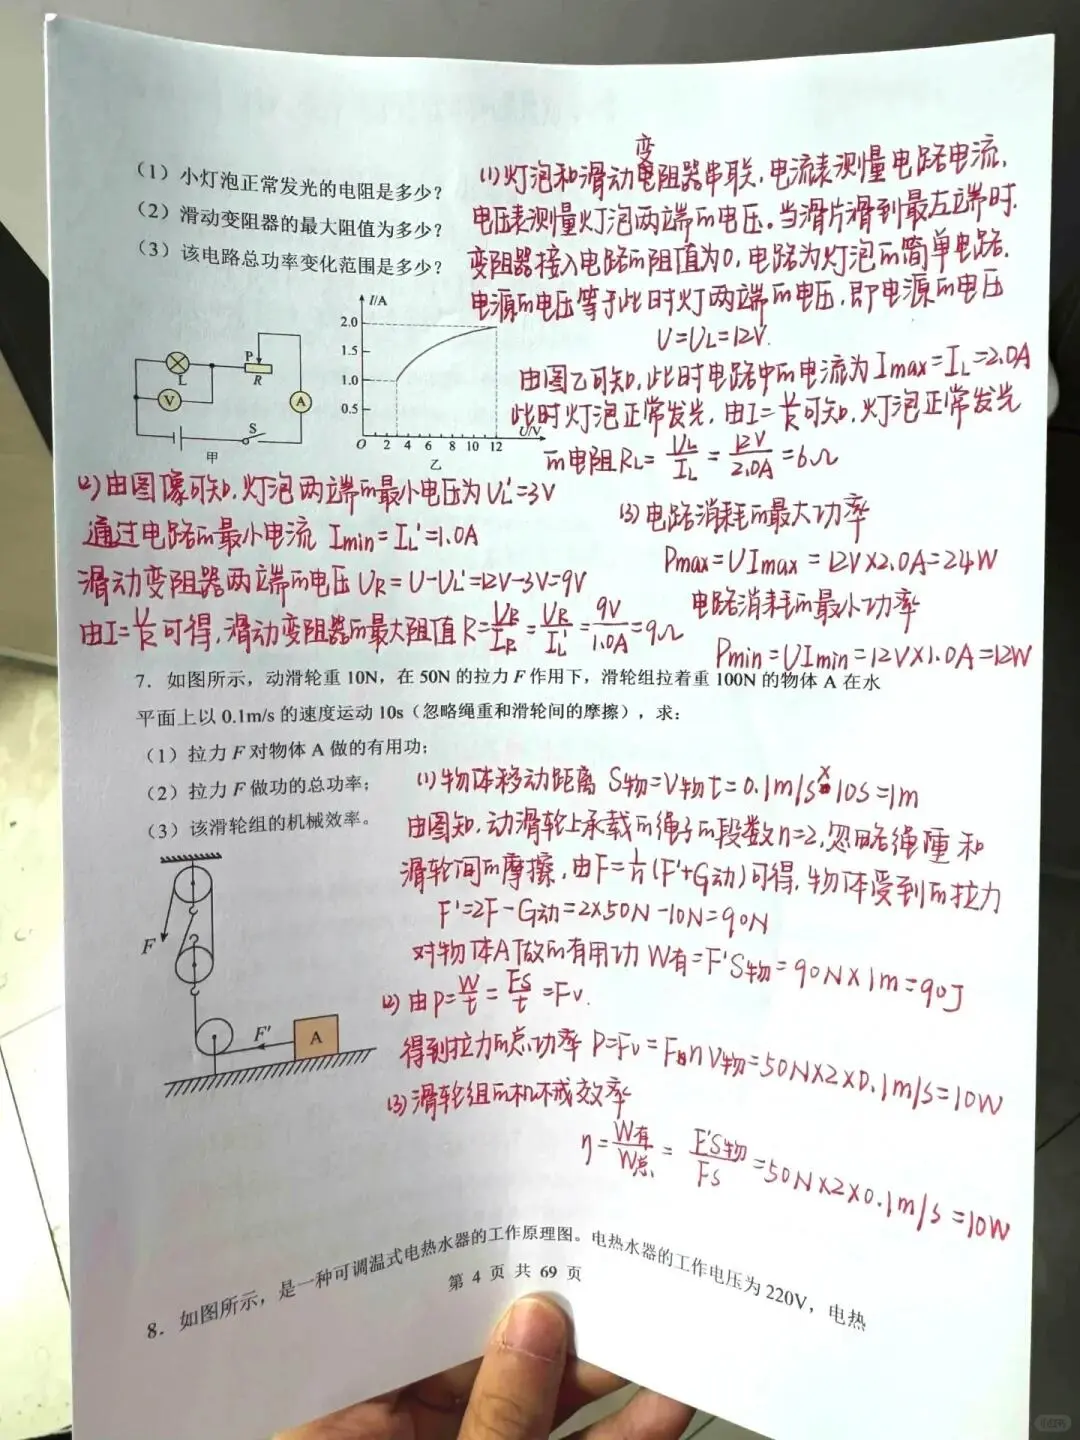 (1) 小灯泡正常发光的电阻是多少?
(2) 滑动变阻器的最大阻值为多少?
(3) 该电路总功率变化范围是多少?
(1)灯泡和滑动变阻器串联,电流表测量电路电流,
电压表测量灯泡两端的电压。当滑片滑到最左端时,
变阻器接入电路的阻值为0,电路为灯泡的简单电路,
电源的电压等于此时灯两端的电压,即电源的电压
U=UL=12V.
由图乙可知,此时电路中的电流为Imax=IL=2.0A
此时灯泡正常发光,由I=U/R可知,灯泡正常发光
的电阻RL=UL/IL=12V/2.0A=6Ω
L
V
P
R
A
S
甲
I/A
2.0
1.5
1.0
0.5
O 2 4 6 8 10 12 U/V
乙
(2)由图像可知,灯泡两端的最小电压为UL'=3V
通过电路的最小电流 Imin=IL'=1.0A
滑动变阻器两端的电压UR=U-UL'=12V-3V=9V
由I=U/R可得,滑动变阻器的最大阻值R=UR/IR=UR/IL'=9V/1.0A=9Ω
(3)电路消耗的最大功率
Pmax=UImax=12V×2.0A=24W
电路消耗的最小功率
Pmin=UImin=12V×1.0A=12W
7. 如图所示,动滑轮重 10N,在 50N 的拉力 F 作用下,滑轮组拉着重 100N 的物体 A 在水
平面上以 0.1m/s 的速度运动 10s(忽略绳重和滑轮间的摩擦),求:
(1)拉力 F 对物体 A 做的有用功;
(2)拉力 F 做功的总功率;
(3)该滑轮组的机械效率。
F
F'
A
(1)物体移动距离 S物=V物t=0.1m/s×10s=1m
由图知,动滑轮上承载的绳子的段数n=2,忽略绳重和
滑轮间的摩擦,由F=1/n(F'+G动)可得,物体受到的拉力
F'=2F-G动=2×50N-10N=90N
对物体A做的有用功W有=F'S物=90N×1m=90J
(2)由P=W/t=FS/t=Fv.
得到拉力的总功率P=Fv=FnV物=50N×2×0.1m/s=10W
(3)滑轮组的机械效率
η=W有/W总=F'S物/FS=50N×2×0.1m/s=10W
8. 如图所示,是一种可调温式电热水器的工作原理图。电热水器的工作电压为 220V,电热
第 4 页 共 69 页